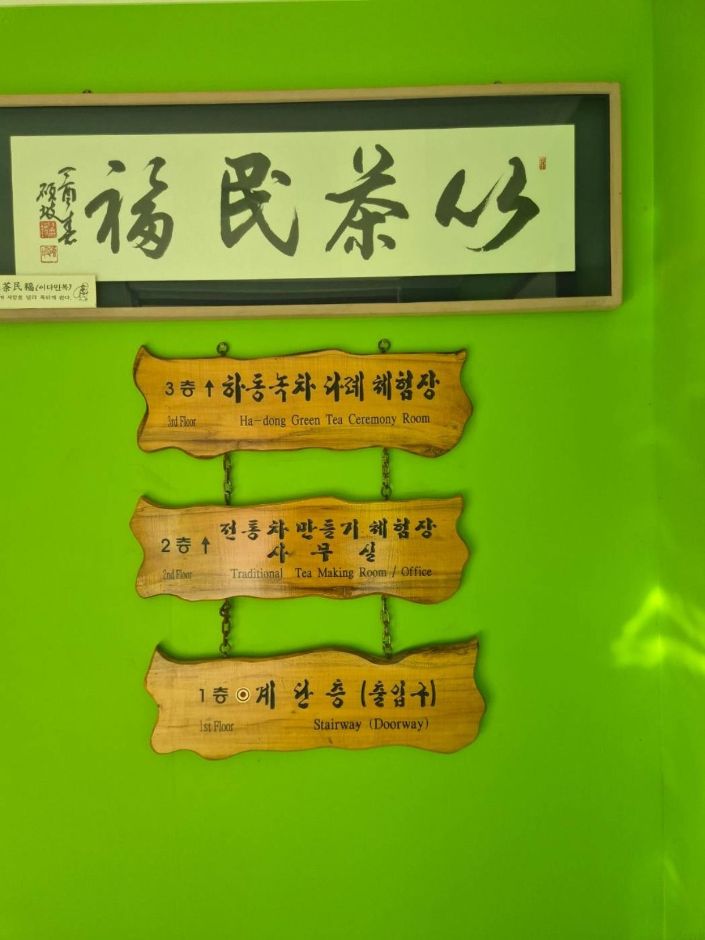 以茶民福
丁酉春
碩坡
茶民福(이다민복)
사람을 널리 복되게
3층 ↑ 하동녹차 다례 체험장
3rd Floor Ha-dong Green Tea Ceremony Room
2층 ↑ 전통차 만들기 체험장
사무실
2nd Floor Traditional Tea Making Room / Office
1층 계단층 (출입구)
1st Floor Stairway (Doorway)